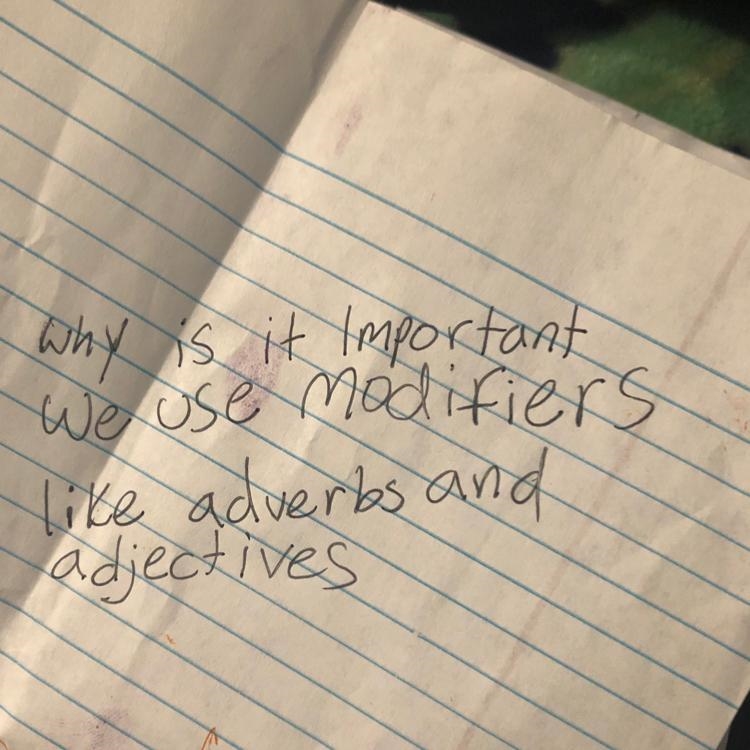 why is it Important
we use Modifiers
like adverbs and
adjectives